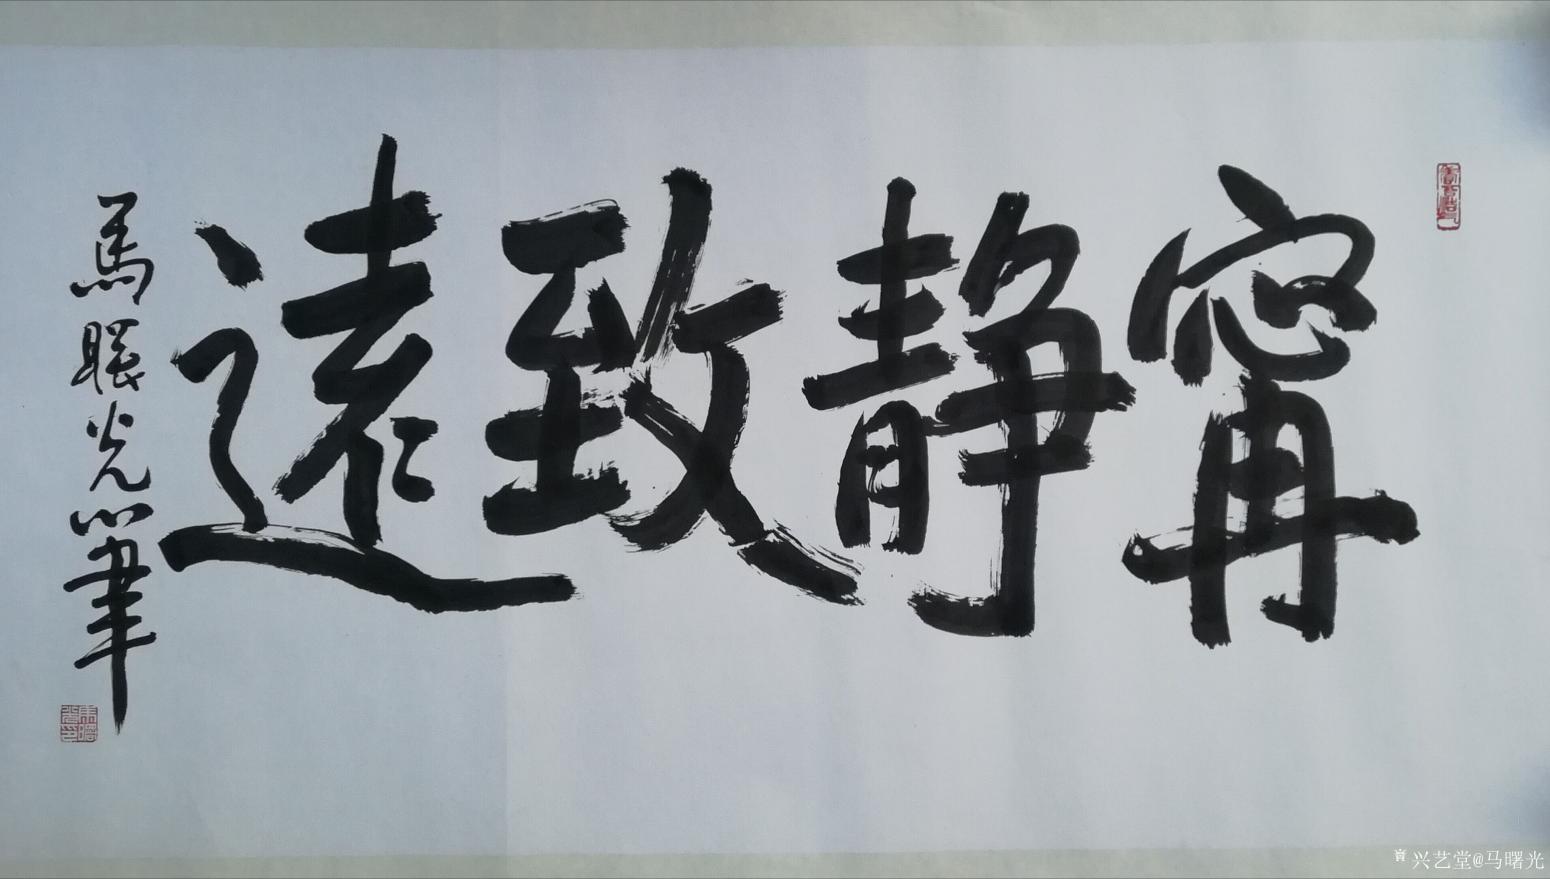 寗静致遠
馬曙光筆
兴艺堂@马曙光